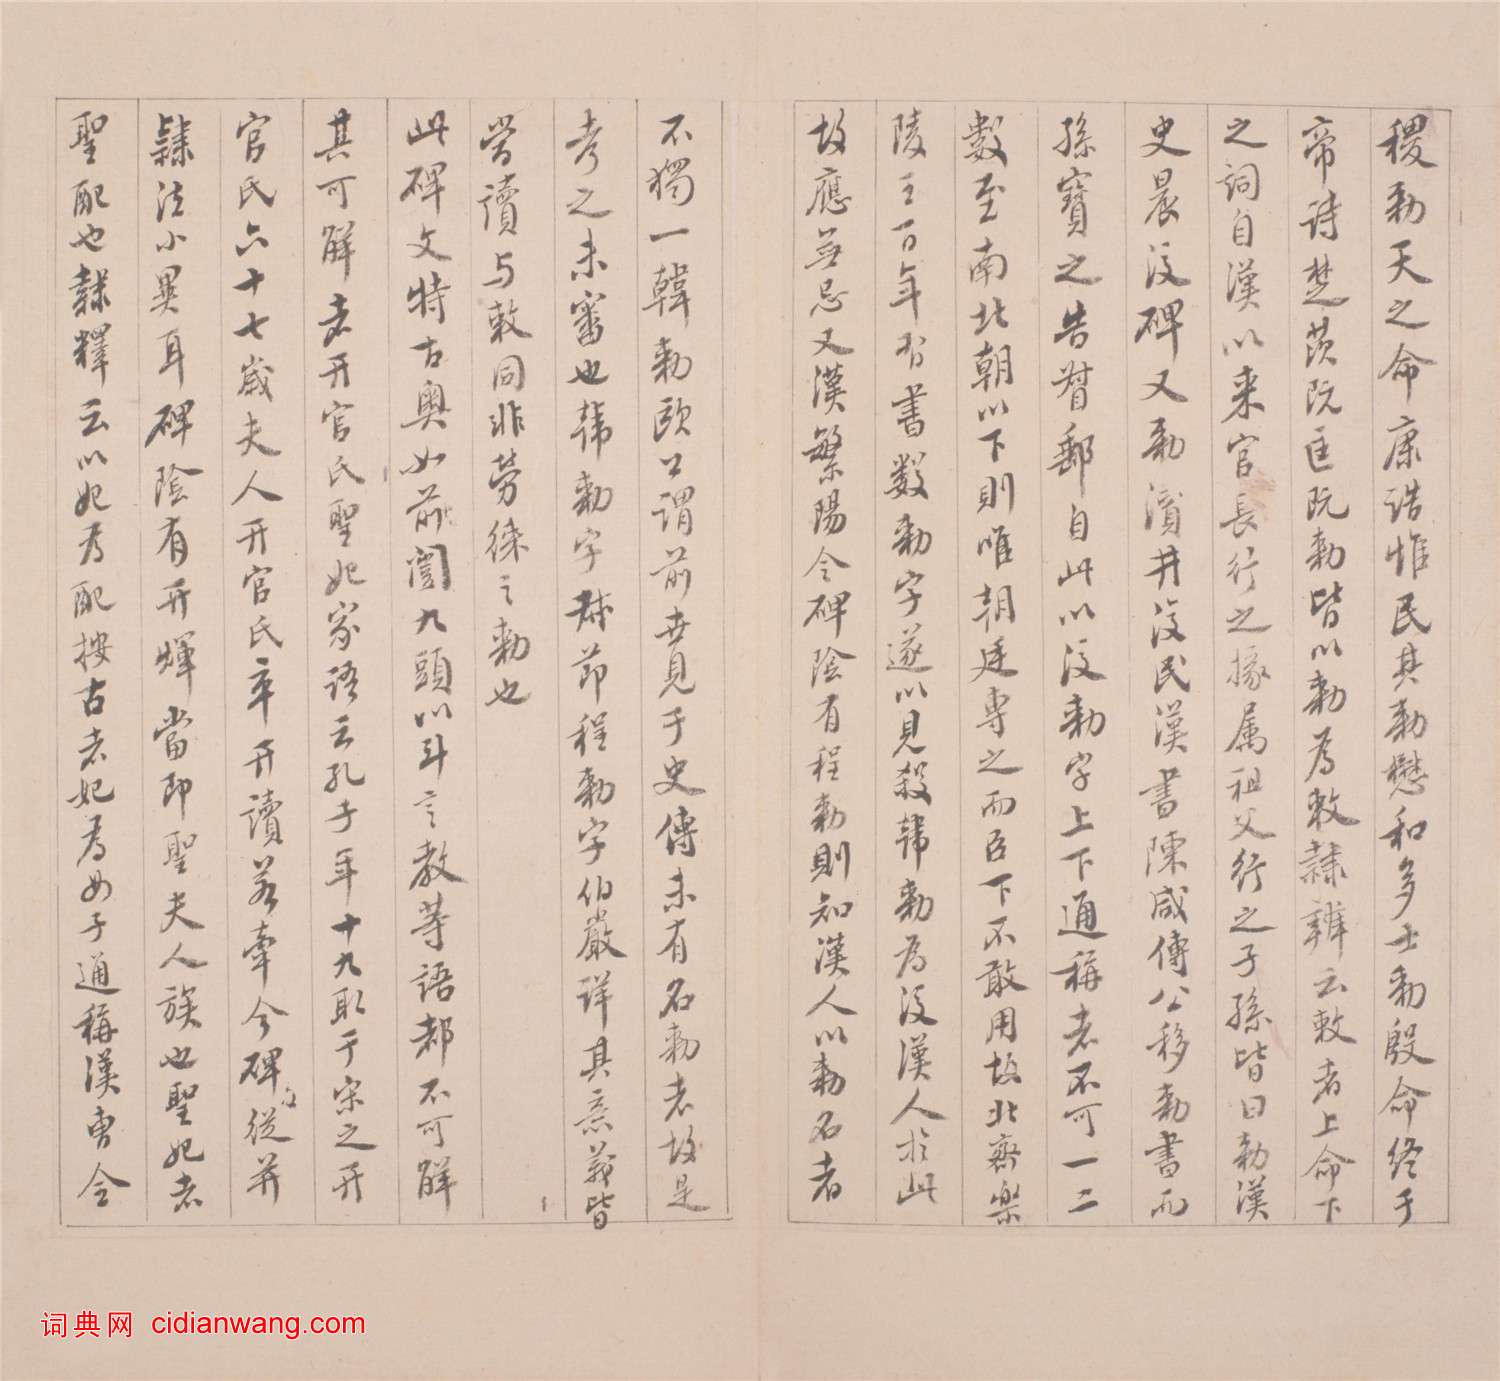 稷勑天之命康誥惟民其勑懋和多士勑殷命终于
帝詩楚茨既匡既勑皆以勑為敕隸辨云敕者上命下
之詞自漢以来官長行之掾属祖父行之子孫皆曰勑漢
史晨後碑又勑瀆井復民漢書陳咸傳公移勑書而
孫寶之告督郵自此以後勑字上下通稱者不可一二
數至南北朝以下則唯朝廷専之而臣下不敢用故北齊樂
陵王百年習書数勑字遂以見殺韩勑為後漢人於此
故應無忌又漢繁陽令碑陰有程勑則知漢人以勑名者
不獨一韓勑歐公謂前世見于史傳未有名勑者故是
考之未審也韩勑字叔节程勑字伯嚴詳其意義皆
當讀与敕同非勞徠之勑也
此碑文特古奥如前闓九頭以斗言教等語都不可解
其可解者开官氏聖妃家语云孔子年十九取于宋之开
官氏六十七歳夫人开官氏卒开讀若牽今碑從并
隸法小異耳碑陰有开煇當即聖夫人族也聖妃者
聖配也隸釋云以妃為配按古者妃為女子通稱漢曹全
词典网 cidianwang.com